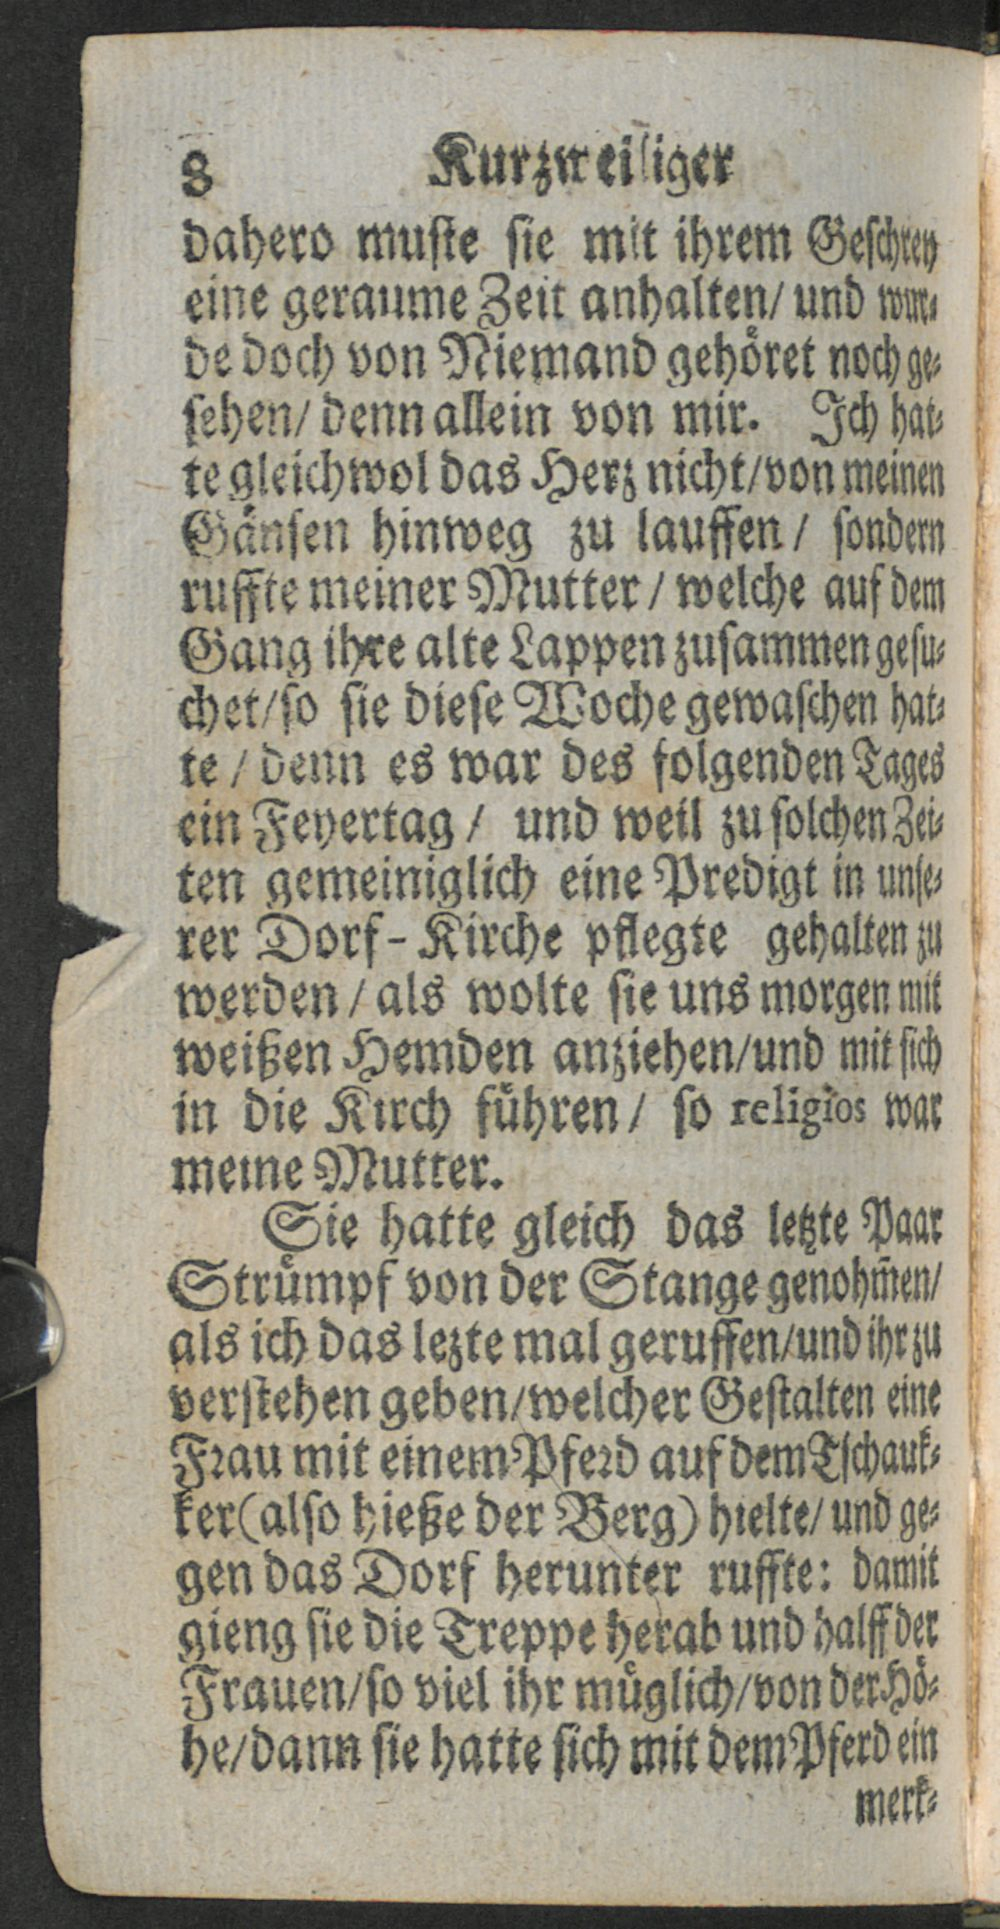 8 Kurzweiliger
dahero muſte ſie mit ihrem Geſchrey
eine geraume Zeit anhalten/ und wur⸗
de doch von Niemand gehöret noch ge⸗
ſehen/ denn allein von mir. Ich hat⸗
te gleichwol das Herz nicht/ von meinen
Gänſen hinweg zu lauffen / ſondern
ruffte meiner Mutter / welche auf dem
Gang ihre alte Lappen zuſammen geſu⸗
chet/ ſo ſie dieſe Woche gewaſchen hat⸗
te / denn es war des folgenden Tages
ein Feyertag / und weil zu ſolchen Zei⸗
ten gemeiniglich eine Predigt in unſe⸗
rer Dorf-Kirche pflegte gehalten zu
werden / als wolte ſie uns morgen mit
weißen Hemden anziehen/ und mit ſich
in die Kirch führen / ſo religios war
meine Mutter.
Sie hatte gleich das letzte Paar
Strümpf von der Stange genohm̃en/
als ich das lezte mal geruffen/ und ihr zu
verſtehen geben/ welcher Geſtalten eine
Frau mit einem Pferd auf dem Tſchauk⸗
ker (alſo hieße der Berg) hielte/ und ge⸗
gen das Dorf herunter ruffte: damit
gieng ſie die Treppe herab und halff der
Frauen/ ſo viel ihr müglich/ von der Hö⸗
he/ dann ſie hatte ſich mit dem Pferd ein
merk⸗